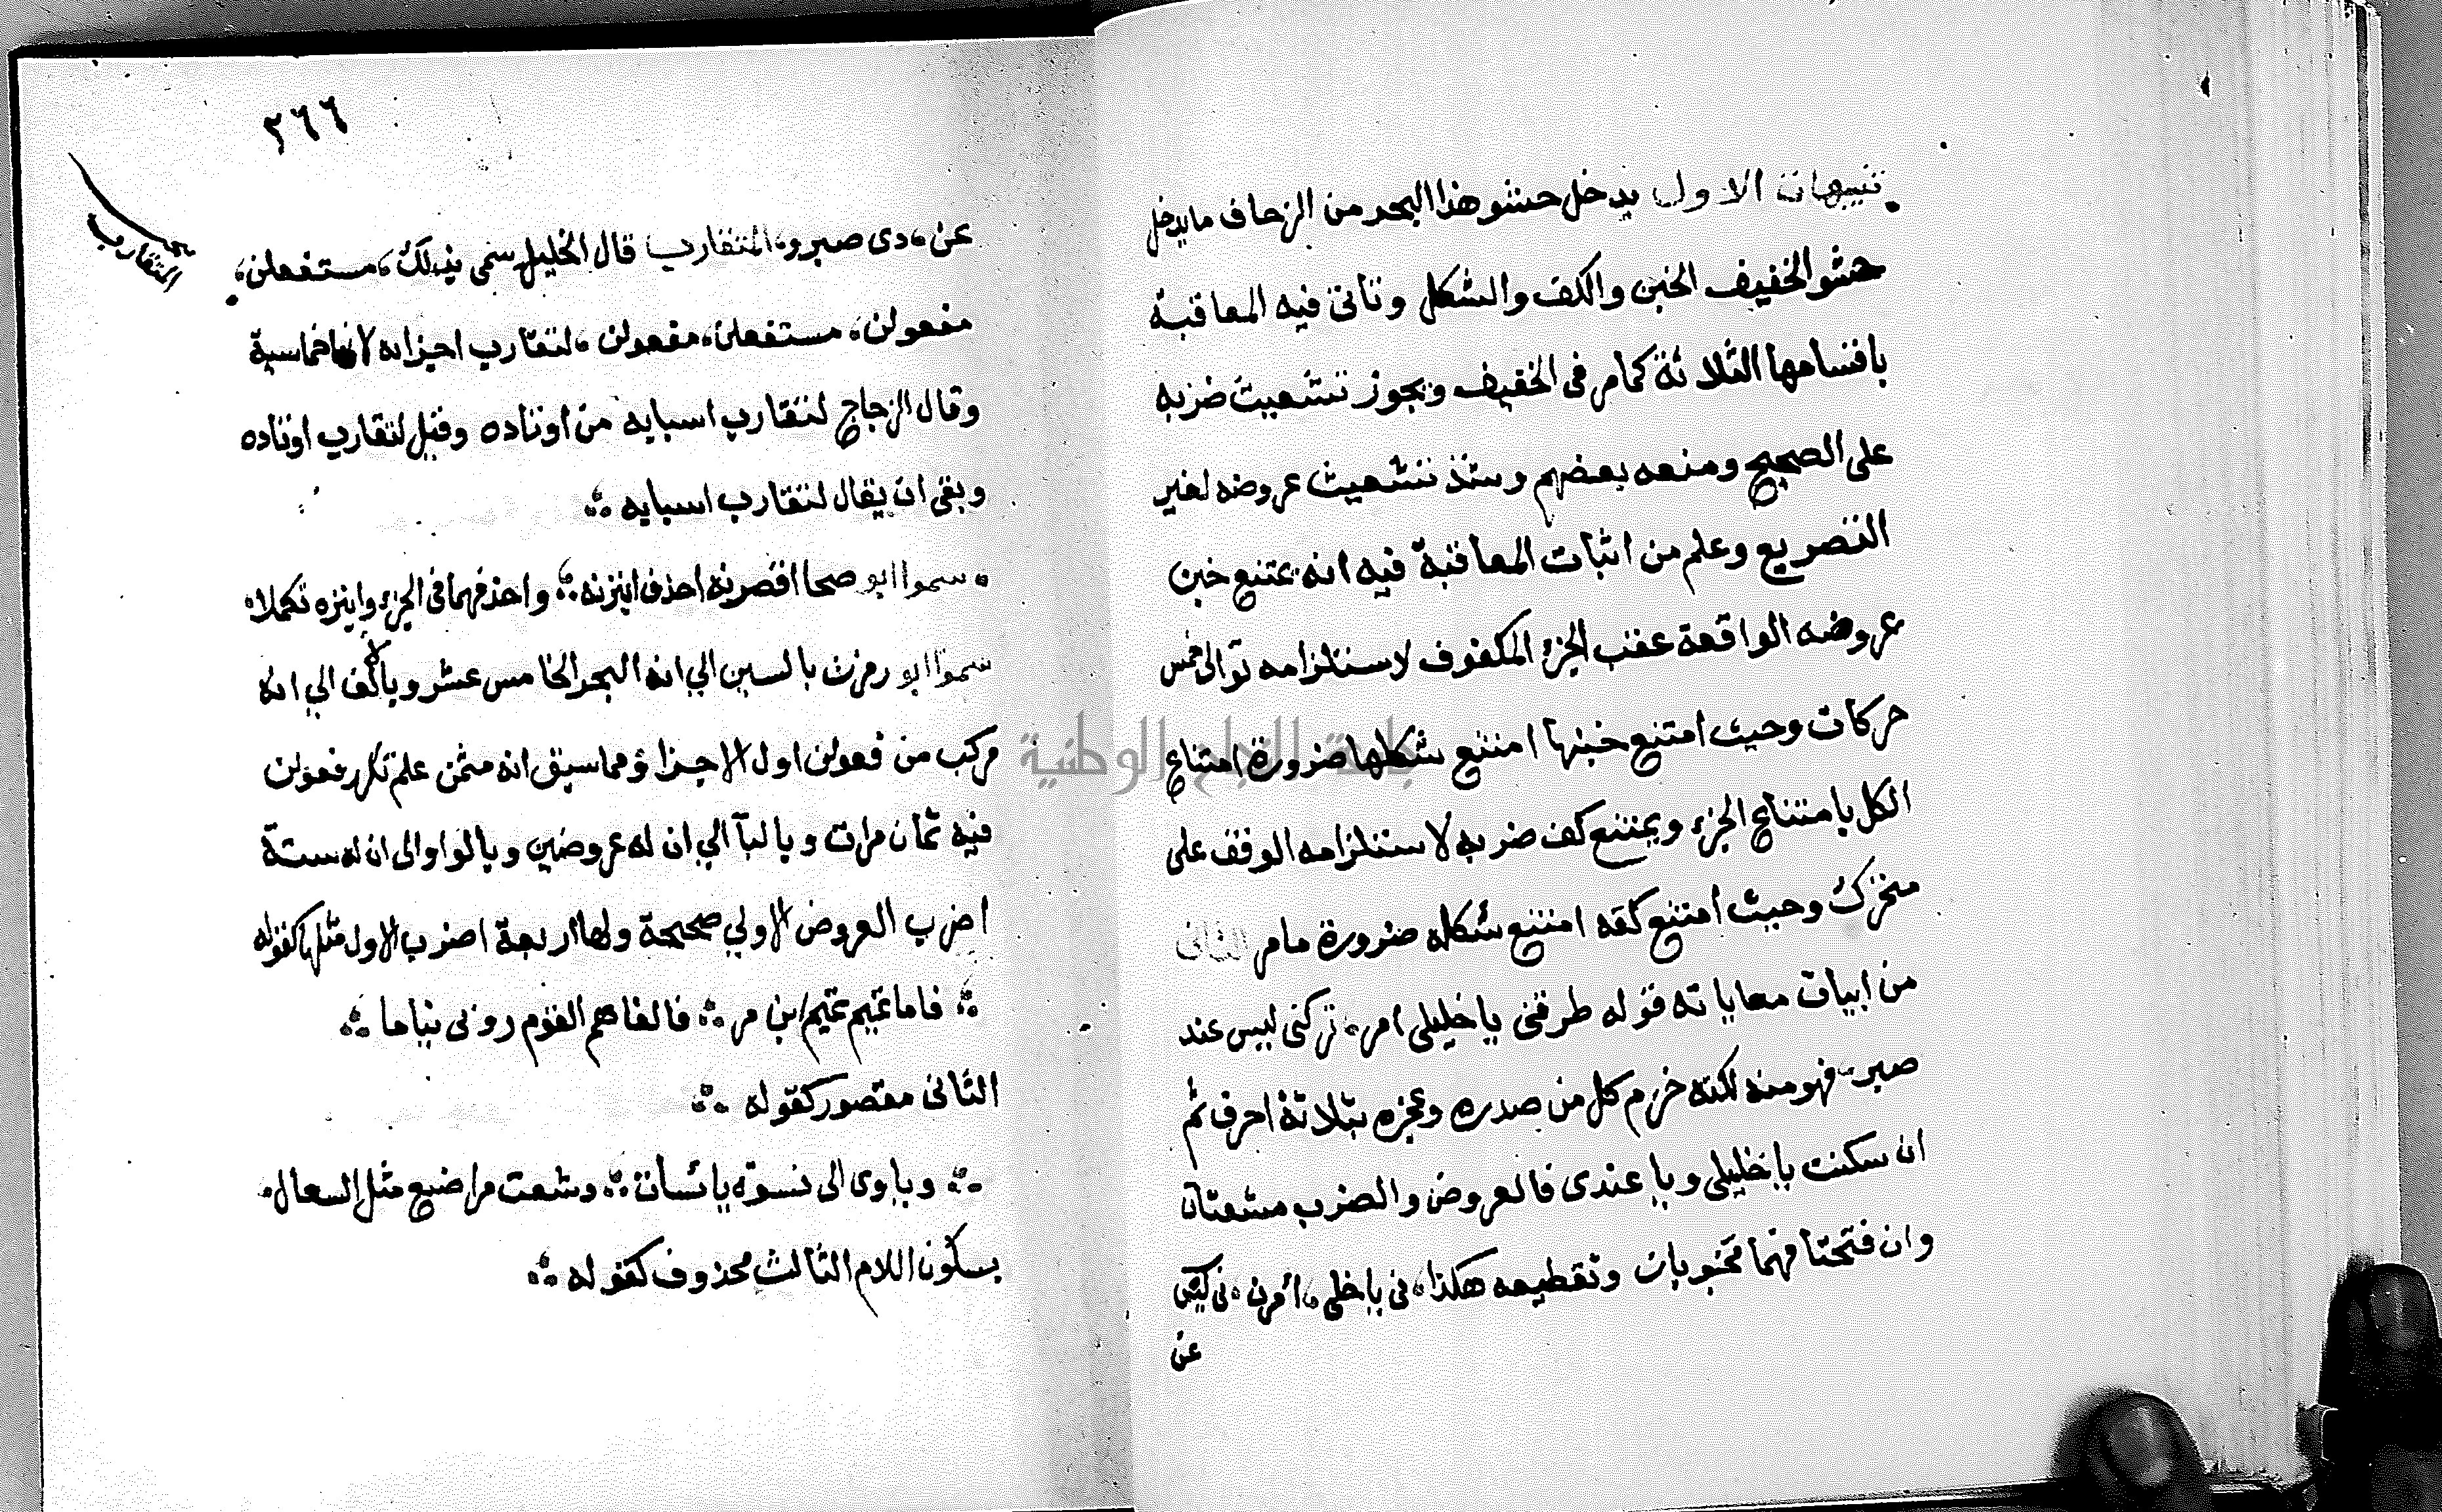 تنبيهات الاول يدخل حشو هذا البحر من الزحاف ما يدخل
حشو الخفيف الخبن والكف والشكل وتاتى فيه المعاقبة
باقسامها الثلاثة كما مر فى الخفيف ويجوز تشعيث ضربه
على الصحيح ومنعه بعضهم وشذ تشعيث عروضه لغير
التصريع وعلم من اثبات المعاقبة فيه انه يمتنع خبن
عروضه الواقعة عقب الجزء المكفوف لاستلزامه توالى خمس
حركات وحيث امتنع خبنها امتنع شكلها ضرورة امتناع
الكل بامتناع الجزء ويمتنع كف ضربه لاستلزامه الوقف على
متحرك وحيث امتنع كفه امتنع شكله ضرورة ما مر الثانى
من ابيات معاياته قوله طرقتنى يا خليلى امر تركنى ليس عند
صبر فهو منه لكنه خزم كل من صدره وعجزه بثلاثة احرف ثم
ان سكنت يا خليلى ويا عندى فالعروض والضرب مشعثان
وان فتحتا فهما مخبونان وتقطيعه هكذا نى يا خلى امرن نى ليس
عن
٢٦٦
المتقارب
عن دى صبرو المتقارب قال الخليل سمى بذلك مستفعلن
مفعولن مستفعلن مفعولن لتقارب اجزائه لانها خماسية
وقال الزجاج لتقارب اسبابه من اوتاده وقيل لتقارب اوتاده
وبقى ان يقال لتقارب اسبابه
سموا ابو صحا اقصرنه احذف ابترنه واحذفهما فى الجزء وابتره تكملا
سموا ابو رمزت بالسين الي انه البحر الخامس عشر وبالالف الي انه
مركب من فعولن اول الاجزاء ومما سبق انه مثمن علم تكرر فعولن
فيه ثمان مرات وبالبآ الي ان له عروضين وبالواو الى ان له ستة
اضرب العروض الاولي صحيحة ولها اربعة اضرب الاول مثلها كقوله
فاما تميم تميم ابن مر فالفاهم القوم روبى نياما
الثانى مقصور كقوله
وياوى الى نسوة يائسات وشعث مراضيع مثل السعال
بسكون اللام الثالث محذوف كقوله
جامعة النجاح الوطنية